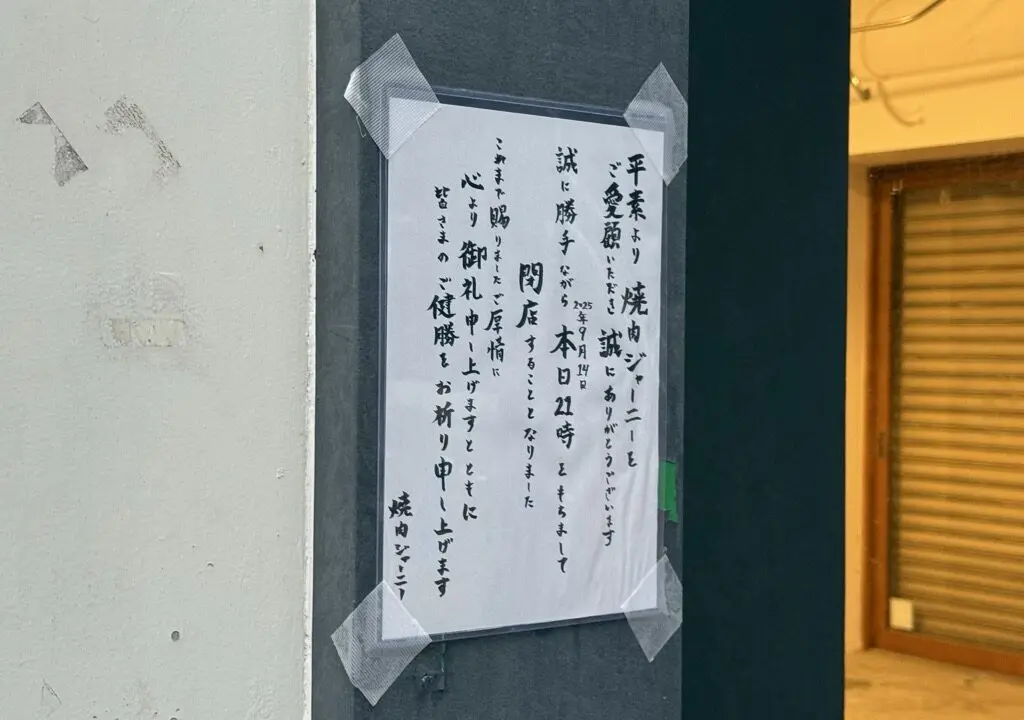 平素より 焼肉ジャーニーを
ご愛顧いただき 誠にありがとうございます
2025年9月14日
誠に勝手ながら 本日21時をもちまして
閉店することとなりました
これまで賜りましたご厚情に
心より御礼申し上げますとともに
皆さまのご健勝をお祈り申し上げます
焼肉ジャーニー